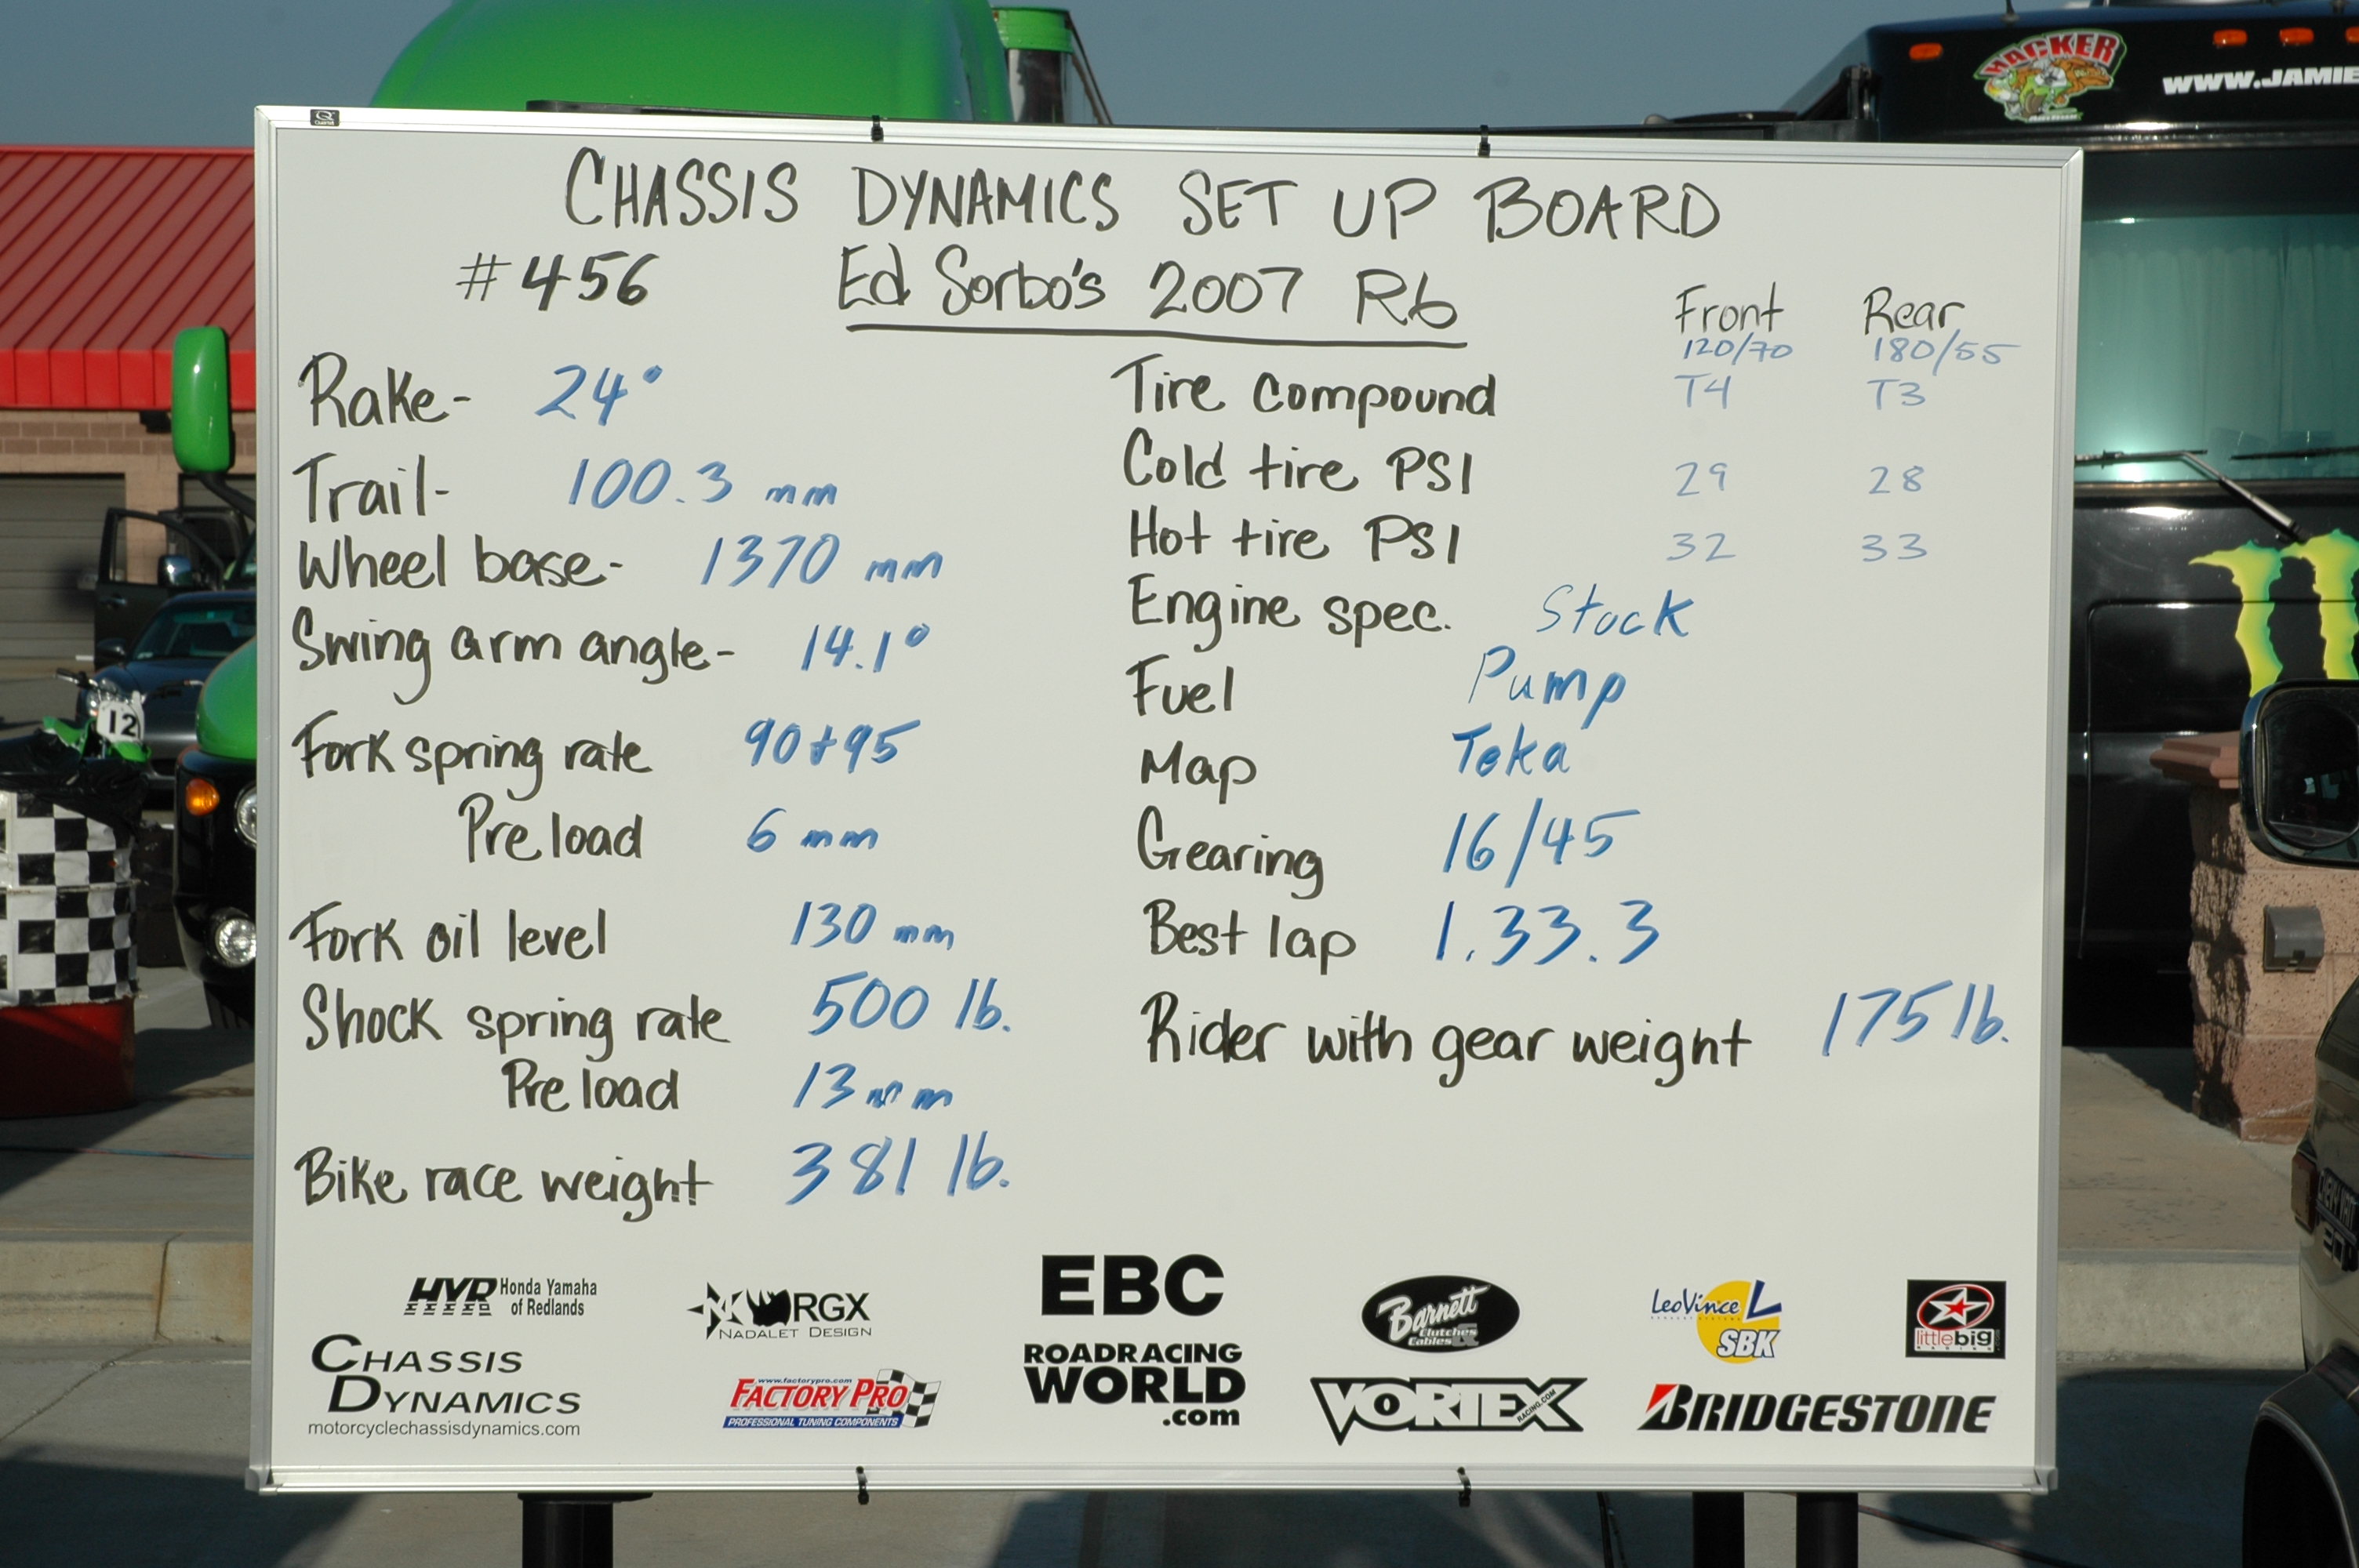 HACKER
WWW.JAMIE
CHASSIS DYNAMICS SET UP BOARD
#456 Ed Sorbo's 2007 R6
Front Rear
120/70 180/55
Rake- 24°
Trail- 100.3 mm
Wheel base- 1370 mm
Swing arm angle- 14.1°
Fork spring rate 90+95
Pre load 6 mm
Fork oil level 130 mm
Shock spring rate 500 lb.
Pre load 13 mm
Bike race weight 381 lb.
Tire compound T4 T3
Cold tire PSI 29 28
Hot tire PSI 32 33
Engine spec. Stock
Fuel Pump
Map Teka
Gearing 16/45
Best lap 1.33.3
Rider with gear weight 175 lb.
12
HYR Honda Yamaha
of Redlands
RGX
NADALET DESIGN
EBC
Barnett
Clutches &
Cables
LeoVince
SBK
littlebig
CHASSIS
DYNAMICS
motorcyclechassisdynamics.com
www.factorypro.com
FACTORY PRO
PROFESSIONAL TUNING COMPONENTS
ROADRACING
WORLD
.com
VORTEX
RACING.COM
BRIDGESTONE